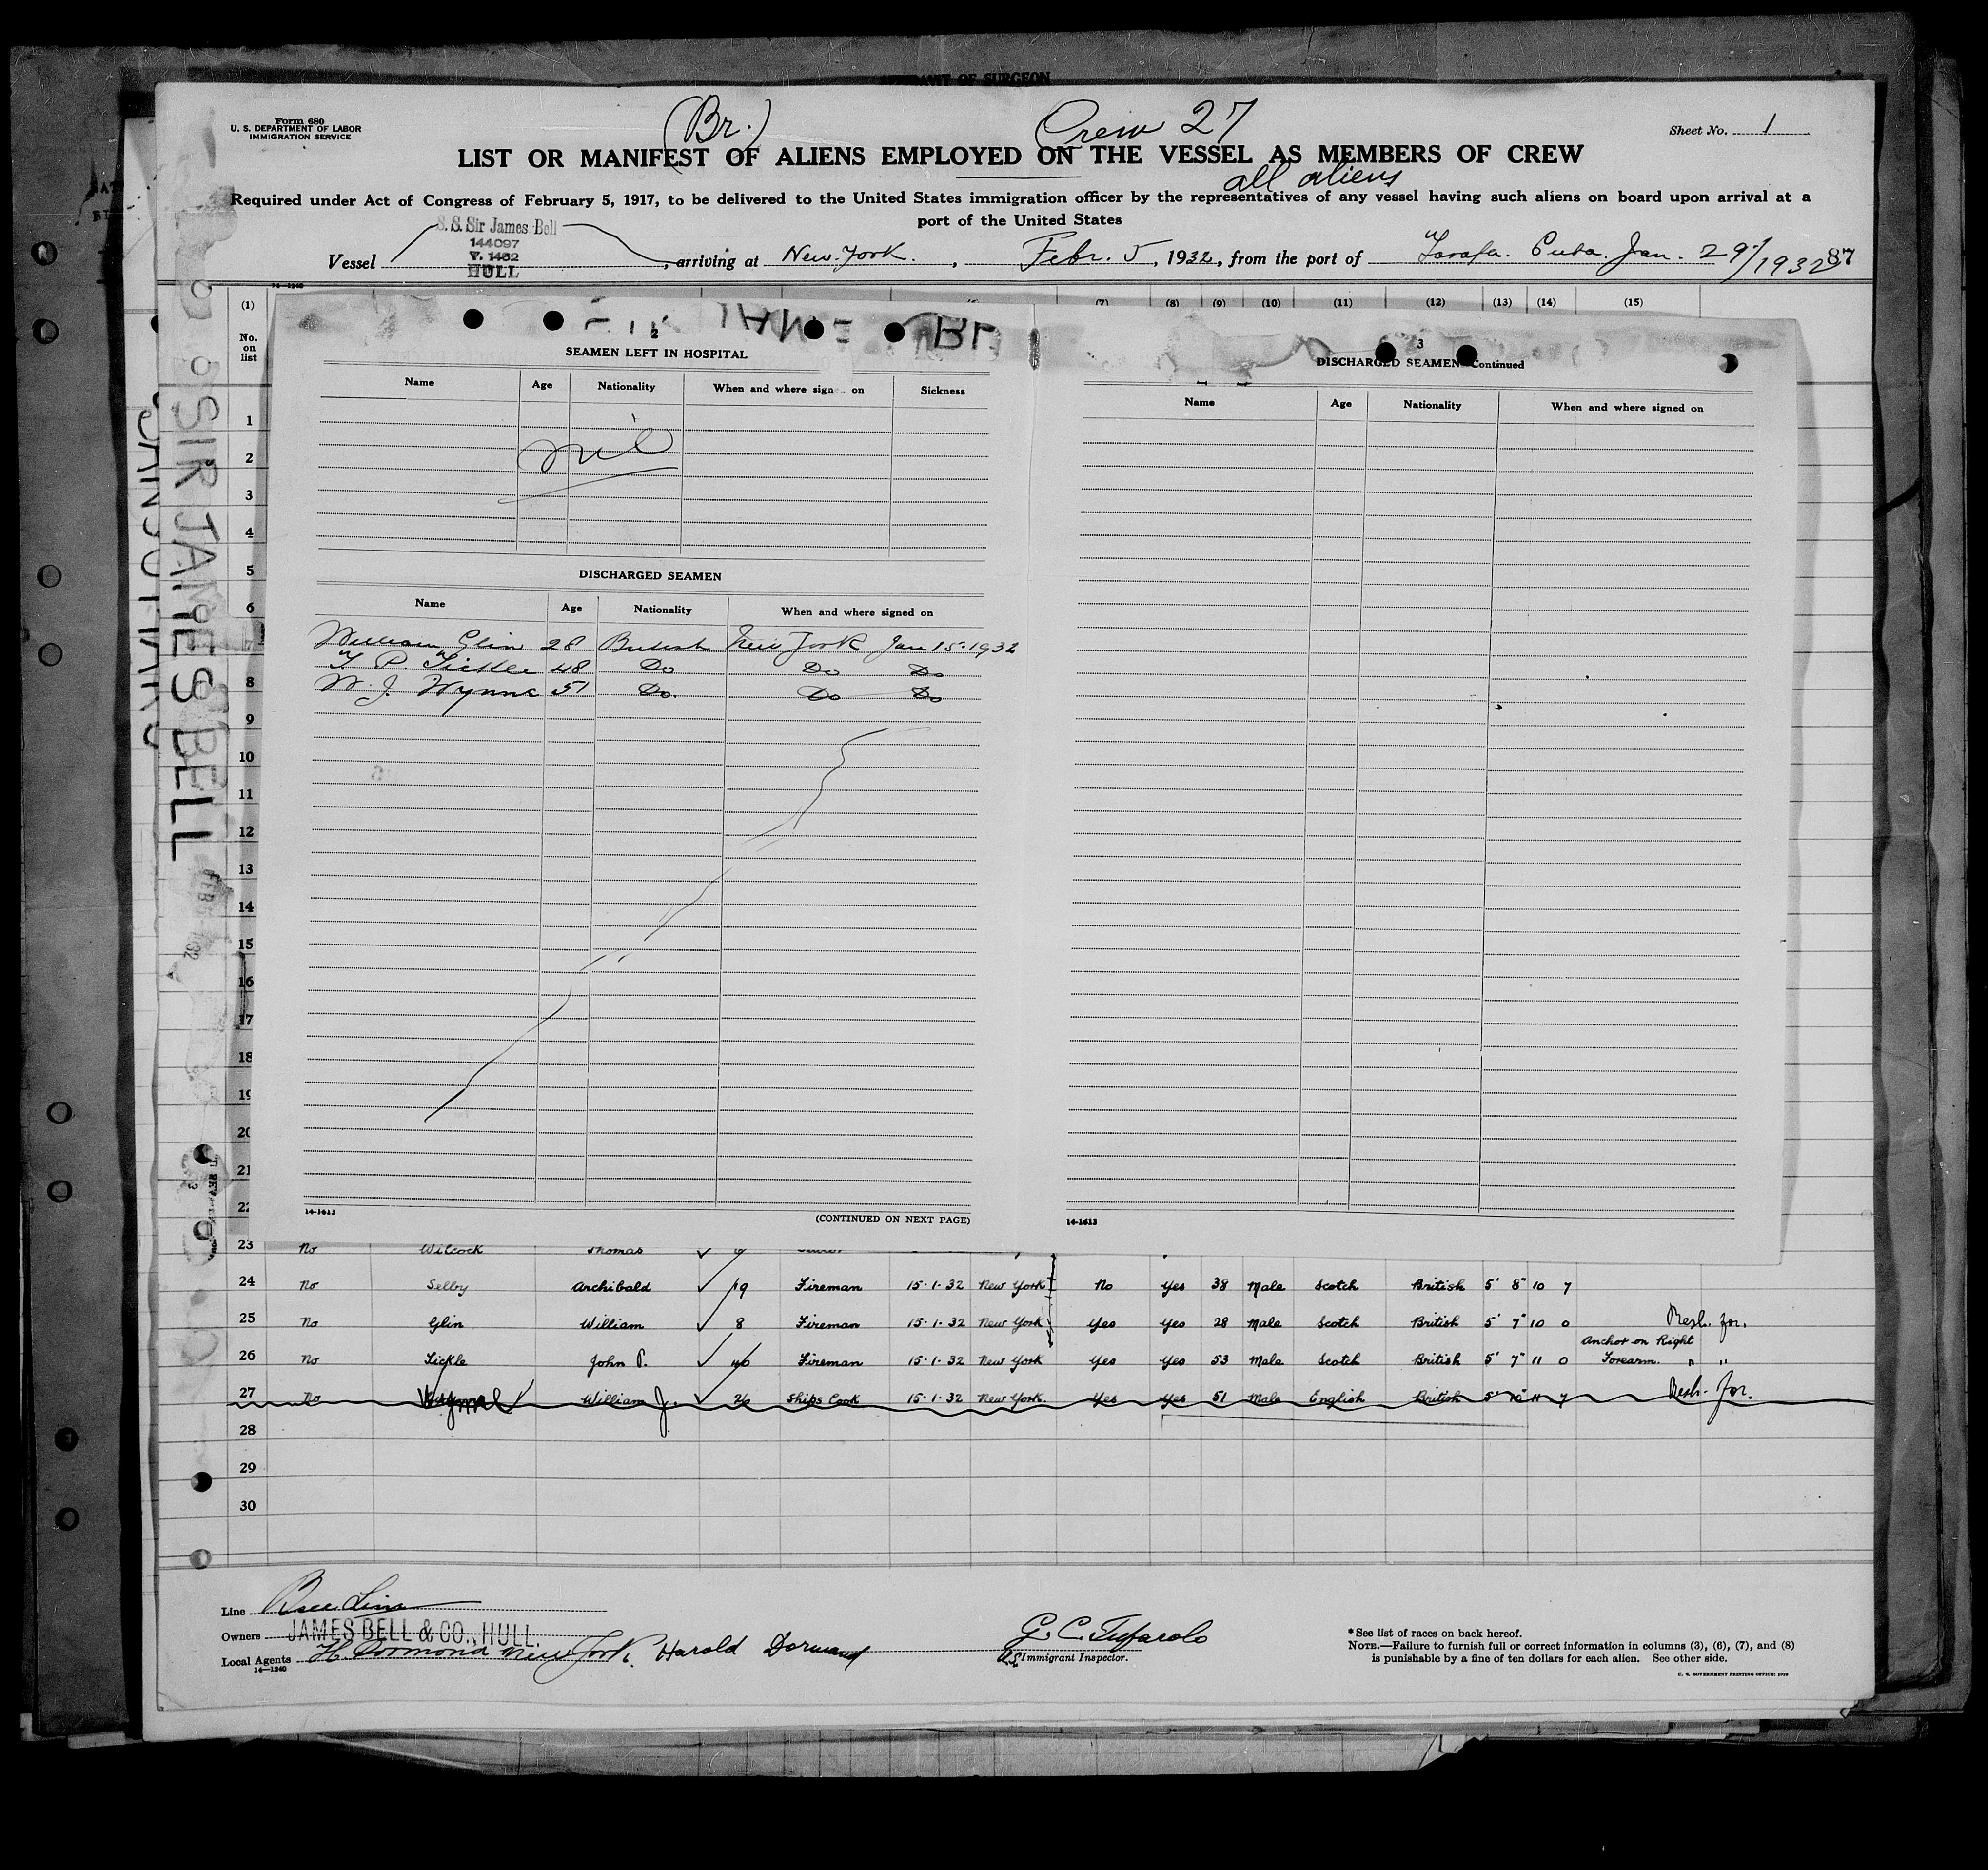 AFFIDAVIT OF SURGEON
Form 680
U. S. DEPARTMENT OF LABOR
IMMIGRATION SERVICE
(Br.)
Crew 27
Sheet No. 1
LIST OR MANIFEST OF ALIENS EMPLOYED ON THE VESSEL AS MEMBERS OF CREW
all aliens
Required under Act of Congress of February 5, 1917, to be delivered to the United States immigration officer by the representatives of any vessel having such aliens on board upon arrival at a
port of the United States
S. S. Sir James Bell
144097
HULL
Vessel , arriving at New York. , Febr. 5, 1932, from the port of Tarafa. Cuba. Jan. 29/1932
87
(1) (7) (8) (9) (10) (11) (12) (13) (14) (15)
No. on list
SIR JAMES BELL
2
SEAMEN LEFT IN HOSPITAL
Name Age Nationality When and where signed on Sickness
nil
DISCHARGED SEAMEN
Name Age Nationality When and where signed on
William Glin 28 British New York Jan 15. 1932
T P. Tickle 48 Do Do Do
W. J. Wynne 51 Do. Do Do
14-1613
(CONTINUED ON NEXT PAGE)
3
DISCHARGED SEAMEN—Continued
Name Age Nationality When and where signed on
14-1613
1
2
3
4
5
6
7
8
9
10
11
12
13
14
15
16
17
18
19
20
21
22
23 No Wilcock Thomas
24 No Selby Archibald 19 Fireman 15.1.32 New York No Yes 38 Male Scotch British 5' 8" 10 7
25 No Glin William 8 Fireman 15.1.32 New York Yes Yes 28 Male Scotch British 5' 7" 10 0 Resh. for.
Anchor on Right
26 No Tickle John P. 40 Fireman 15.1.32 New York Yes Yes 53 Male Scotch British 5' 7" 11 0 Forearm. " "
27 No William J. 26 Ships Cook 15.1.32 New York. Yes Yes 51 Male English British 5' 10" 11 7 Resh. for.
28
29
30
Line Bell Line
Owners JAMES BELL & CO., HULL.
Local Agents H. Dormand New York. Harold Dormand
14—1240
G. C. Tufarolo
U.S. Immigrant Inspector.
*See list of races on back hereof.
NOTE.—Failure to furnish full or correct information in columns (3), (6), (7), and (8)
is punishable by a fine of ten dollars for each alien. See other side.